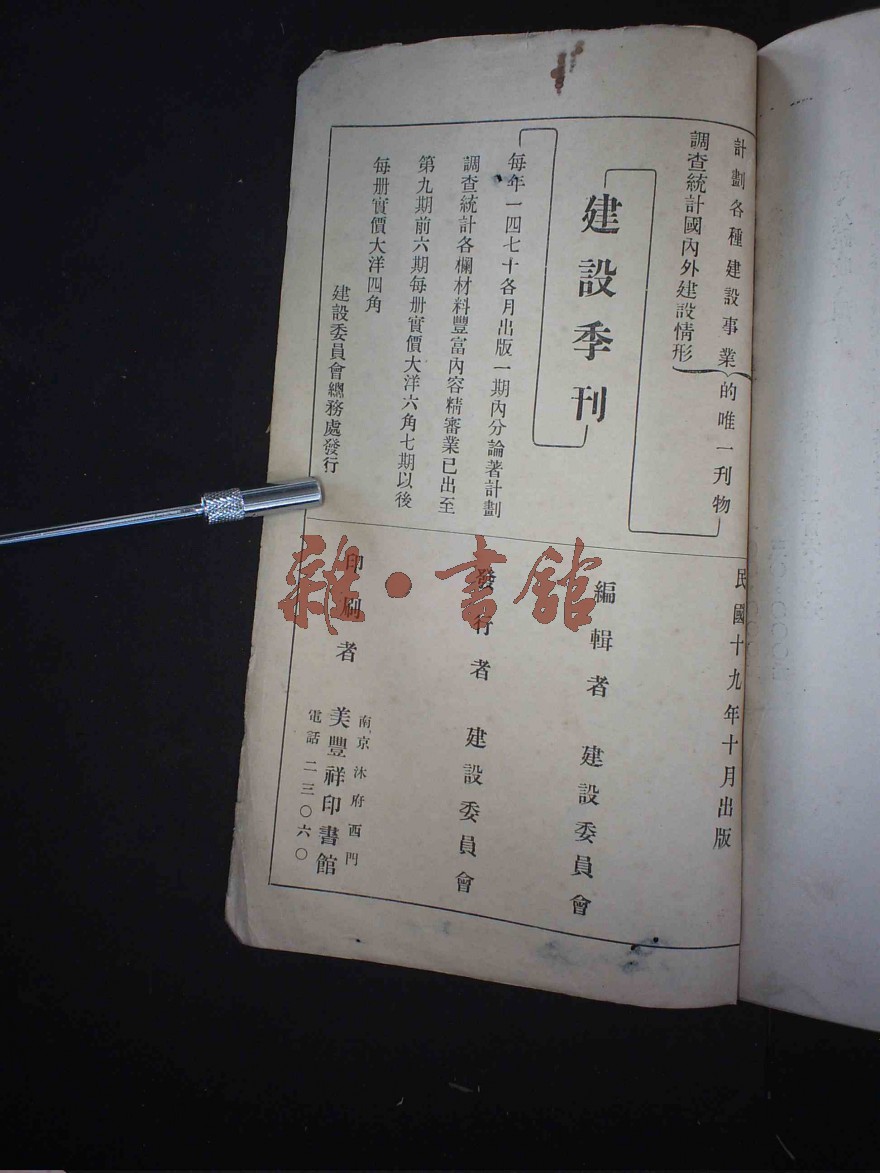 計劃各種建設事業
調查統計國內外建設情形
的唯一刊物
建設季刊
每年一四七十各月出版一期內分論著計劃
調查統計各欄材料豐富內容精審業已出至
第九期前六期每册實價大洋六角七期以後
每册實價大洋四角
建設委員會總務處發行
民國十九年十月出版
編輯者 建設委員會
發行者 建設委員會
印刷者 美豐祥印書館
南京沐府西門
電話二三〇六〇
雜·書館